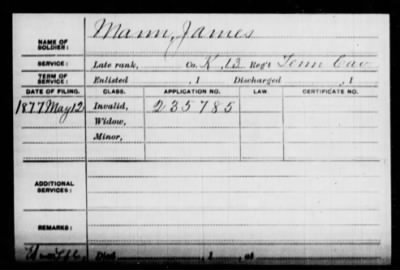 NAME OF SOLDIER: Mann, James
SERVICE: Late rank, Co. K, 13 Reg't Tenn Cav
TERM OF SERVICE: Enlisted , 1 Discharged , 1
DATE OF FILING. CLASS. APPLICATION NO. LAW. CERTIFICATE NO.
1877 May 12 Invalid, 235785
Widow,
Minor,
ADDITIONAL SERVICES:
REMARKS:
Died , 1 , at